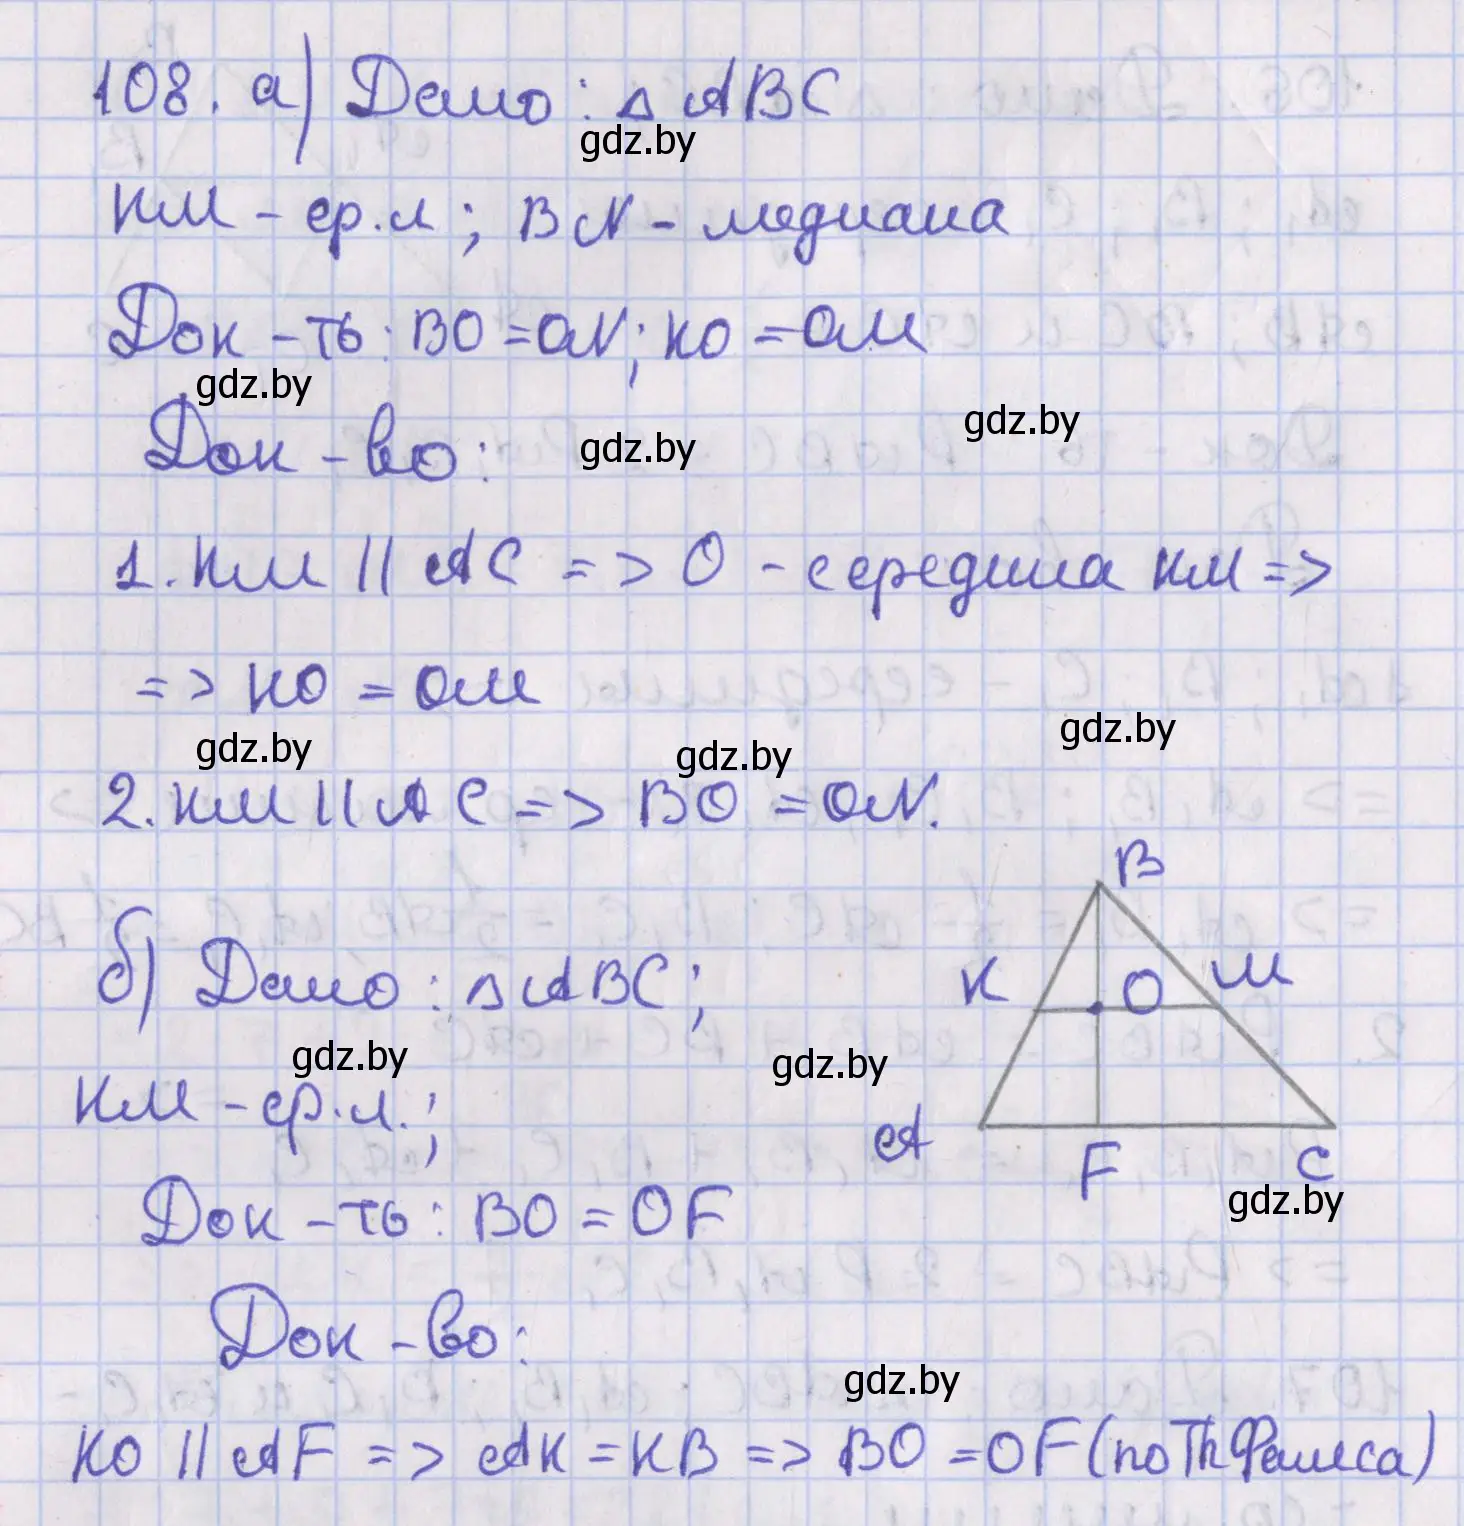 108. а) Дано: △ABC
gdz.by
KM - ср.л; BN - медиана
Док-ть: BO = ON; KO = OM
gdz.by
gdz.by
Док-во:
gdz.by
1. KM || AC => O - середина KM =>
=> KO = OM
gdz.by
gdz.by
gdz.by
2. KM || AC => BO = ON.
B
K
O
M
A
F
C
б) Дано: △ABC;
gdz.by
gdz.by
KM - ср.л.;
gdz.by
Док-ть: BO = OF
Док-во:
gdz.by
KO || AF => AK = KB => BO = OF (по Th Фалеса)